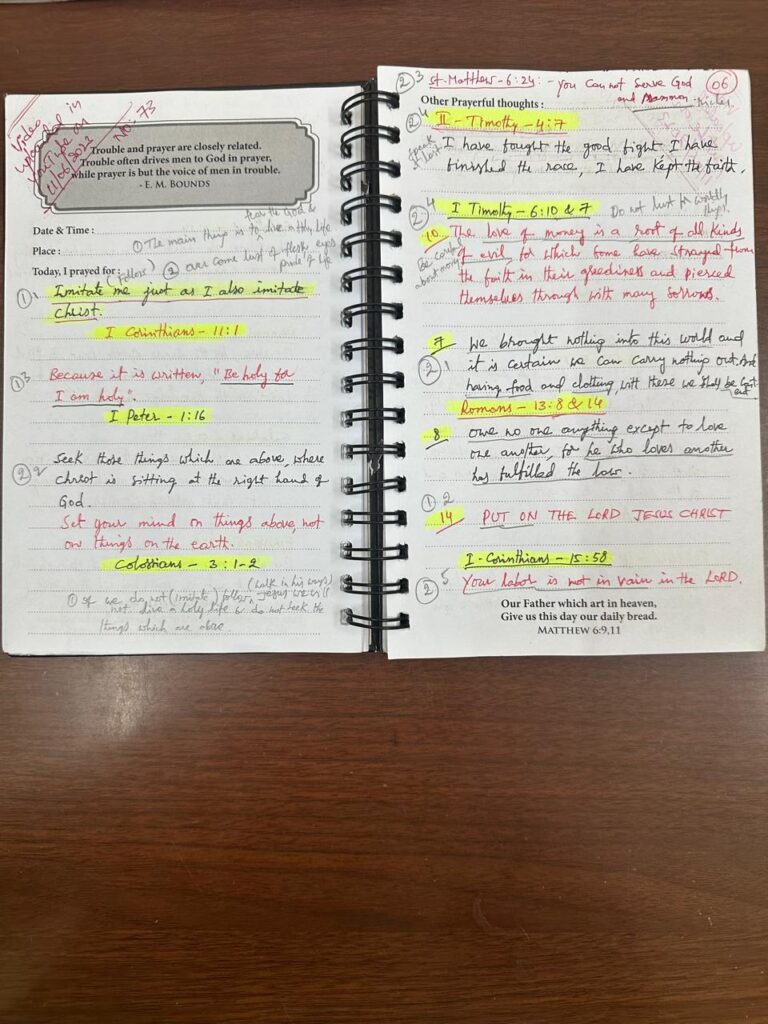 Video
uploaded in
YouTube on
11/06/2022
NO:- 73
Trouble and prayer are closely related.
Trouble often drives men to God in prayer,
while prayer is but the voice of men in trouble.
- E. M. BOUNDS
Date & Time :
fear the God &
Place :
① The main things is to live a Holy life
Today, I prayed for
(follow)
② over come lust of flesh, eyes
pride of life
① 1 Imitate me just as I also imitate
Christ.
I Corinthians - 11:1
① 3 Because it is written, "Be holy for
I am holy".
I Peter - 1:16
② 2 Seek those things which are above, where
Christ is sitting at the right hand of
God.
Set your mind on things above, not
on things on the earth.
Colossians - 3:1-2
(walk in his ways)
① If we do not (imitate) follow, Jesus we will
not live a holy life & do not seek the
things which are above
② 3 St. Matthew - 6:24: - You Cannot Serve God
and Mammon - Riches
06
Other Prayerful thoughts :
② 4 II - Timothy - 4:7
Speak at last
I have fought the good fight I have
finished the race, I have kept the faith.
② 4 I Timothy - 6:10 & 7
Do not lust for worldly
things.
10. The love of money is a root of all kinds
of evil, for which some have strayed from
the faith in their greediness and pierced
themselves through with many sorrows.
about money
7 we brought nothing into this world and
② 1 it is certain we can carry nothing out. And
having food and clothing, with these we shall be content
Romans - 13:8 & 14
8. owe no one anything except to love
one another, for he who loves another
has fulfilled the law.
① 2
14 PUT ON THE LORD JESUS CHRIST
I - Corinthians - 15:58
② 5 Your labor is not in vain in the LORD.
Our Father which art in heaven,
Give us this day our daily bread.
MATTHEW 6:9,11